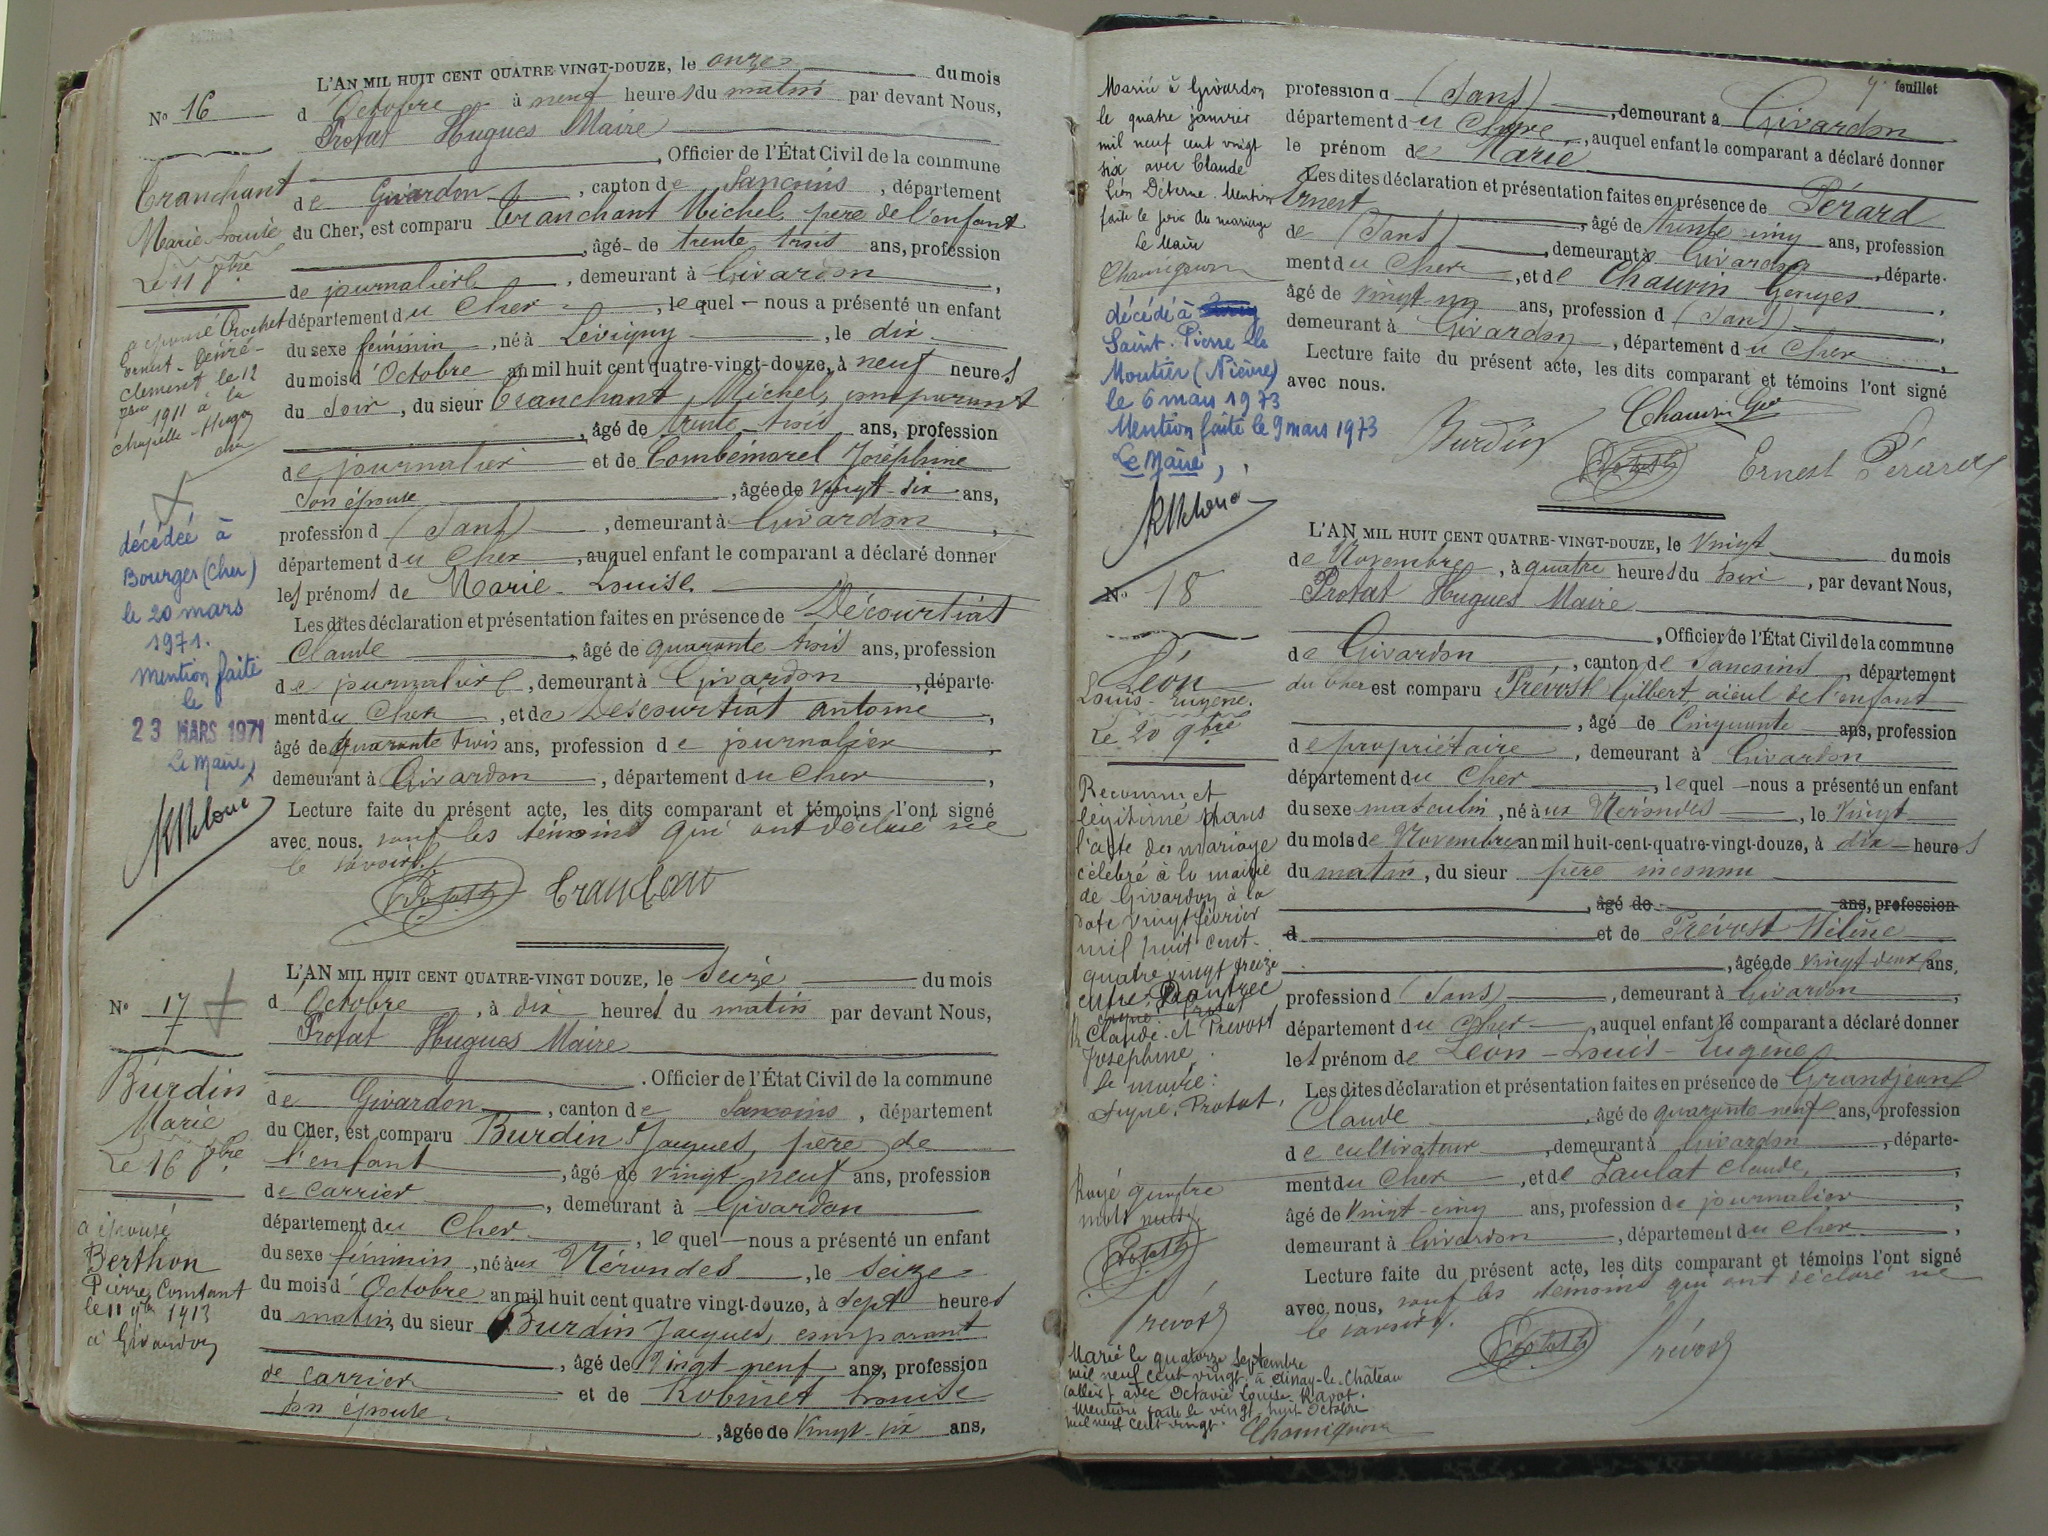 L'AN MIL HUIT CENT QUATRE-VINGT-DOUZE, le onze du mois
d'Octobre à neuf heures du matin par devant Nous,
Protat Hugues Maire
, Officier de l'État Civil de la commune
de Givardon, canton de Sancoins, département
du Cher, est comparu Tranchant Michel, père de l'enfant
, âgé de trente trois ans, profession
de journalier, demeurant à Givardon,
département du Cher, lequel nous a présenté un enfant
du sexe féminin, né à Lévigny, le dix
du mois d'Octobre an mil huit cent quatre-vingt-douze, à neuf heures
du soir, du sieur Tranchant Michel, comparant
, âgé de trente-trois ans, profession
de journalier et de Combémorel Joséphine
son épouse, âgée de vingt-six ans,
profession d (sans), demeurant à Givardon,
département du Cher, auquel enfant le comparant a déclaré donner
les prénoms de Marie-Louise
Les dites déclaration et présentation faites en présence de Décourtiat
Claude, âgé de quarante trois ans, profession
de journalier, demeurant à Givardon, départe-
ment du Cher, et de Descourtiat Antoine,
âgé de quarante trois ans, profession de journalier
demeurant à Givardon, département du Cher,
Lecture faite du présent acte, les dits comparant et témoins l'ont signé
avec nous, sauf les témoins qui ont déclaré ne
le savoir.
No 16
Tranchant
Marie Louise
Le 11 8bre
a épousé Crochet
Ernest-Désiré-
Clément le 12
1911 à la
Chapelle-Hugon
décédée à
Bourges (Cher)
le 20 mars
1971.
Mention faite
le
23 MARS 1971
Le Maire,
L'AN MIL HUIT CENT QUATRE-VINGT DOUZE, le Seize du mois
d'Octobre, à dix heures du matin par devant Nous,
Protat Hugues Maire
. Officier de l'État Civil de la commune
de Givardon, canton de Sancoins, département
du Cher, est comparu Burdin Jacques, père de
l'enfant, âgé de vingt neuf ans, profession
de carrier, demeurant à Givardon
département du Cher, lequel nous a présenté un enfant
du sexe féminin, né aux Nérondes, le seize
du mois d'Octobre an mil huit cent quatre vingt-douze, à sept heures
du matin, du sieur Burdin Jacques, comparant
, âgé de vingt neuf ans, profession
de carrier et de Robinet Louise
son épouse, âgée de vingt-six ans,
No 17
Burdin
Marie
Le 16 8bre
a épousé
Berthon
Pierre Constant
le 11 1913
à Givardon
feuillet
profession d (sans), demeurant à Givardon
département du Cher, auquel enfant le comparant a déclaré donner
le prénom de Marie
Les dites déclaration et présentation faites en présence de Pérard
Ernest, âgé de trente cinq ans, profession
de (sans), demeurant à Givardon, départe-
ment du Cher, et de Chauvin Georges,
âgé de vingt ans, profession d (sans),
demeurant à Givardon, département du Cher,
Lecture faite du présent acte, les dits comparant et témoins l'ont signé
avec nous.
Burdin
Chauvin
Ernest Pérard
Mariée à Givardon
le quatre janvier
mil neuf cent vingt
six avec Claude
Léon Déterne. Mention
faite le jour du mariage
Le Maire
Chamignon
décédé à
Saint-Pierre Le
Moutier (Nièvre)
le 6 mars 1973
Mention faite le 9 mars 1973
Le Maire,
L'AN MIL HUIT CENT QUATRE-VINGT-DOUZE, le vingt du mois
de Novembre, à quatre heures du soir, par devant Nous,
Protat Hugues Maire
, Officier de l'État Civil de la commune
de Givardon, canton de Sancoins, département
du Cher est comparu Prévost Gilbert, aïeul de l'enfant
, âgé de Cinquante ans, profession
de propriétaire, demeurant à Givardon
département du Cher, lequel nous a présenté un enfant
du sexe masculin, né aux Nérondes, le vingt
du mois de Novembre an mil huit-cent-quatre-vingt-douze, à dix heures
du matin, du sieur père inconnu
, âgé de ans, profession
d et de Prévost Hélène
, âgée de vingt deux ans,
profession d (sans), demeurant à Givardon,
département du Cher, auquel enfant le comparant a déclaré donner
les prénom de Léon-Louis-Eugène
Les dites déclaration et présentation faites en présence de Grandjean
Claude, âgé de quarante neuf ans, profession
de cultivateur, demeurant à Givardon, départe-
ment du Cher, et de Laulat Claude,
âgé de vingt-cinq ans, profession de journalier,
demeurant à Givardon, département du Cher,
Lecture faite du présent acte, les dits comparant et témoins l'ont signé
avec nous, sauf les témoins qui ont déclaré ne
le savoir.
Prévost
No 18
Léon
Louis-Eugène.
Le 20 9bre
Reconnu et
légitimé dans
l'acte de mariage
célébré à la mairie
de Givardon à la
date vingt février
mil huit cent-
quatre vingt treize
entre
Claude et Prévost
Joséphine.
Le maire:
signé: Protat.
Rayé quatre
mots nuls
Prévost
Marié le quatorze Septembre
mil neuf cent vingt, à Ainay-le-Château
(Allier) avec Octavie Louise Ravot.
Mention faite le vingt huit Octobre
mil neuf cent vingt.
Chamignon